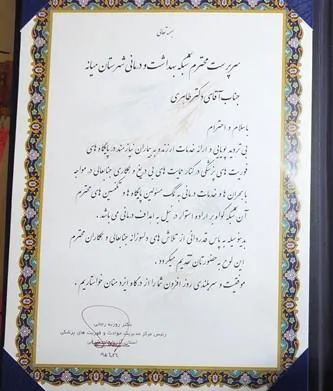 بسمه تعالی
سرپرست محترم شبکه بهداشت و درمانی شهرستان میانه
جناب آقای دکتر طاهری
با سلام و احترام
بی تردید پویایی و ارائه خدمات ارزنده به بیماران نیازمند در پایگاه های
فوریت های پزشکی در کنار حمایت های بی دریغ و همکاری جنابعالی در مواجهه
با بحران ها و خدمات درمانی به کمک مسئولین پایگاه ها و تکنسین های محترم
آن شبکه گواه بر اراده استوار در نیل به اهداف درمانی می باشد.
بدینوسیله به پاس قدردانی از تلاش های دلسوزانه جنابعالی و همکاران محترم
این لوح به حضورتان تقدیم میگردد.
موفقیت و سربلندی روز افزون شما را از درگاه ایزد منان خواستاریم.
دکتر روزبه رجایی
رئیس مرکز مدیریت حوادث و فوریت های پزشکی
استان آذربایجان شرقی